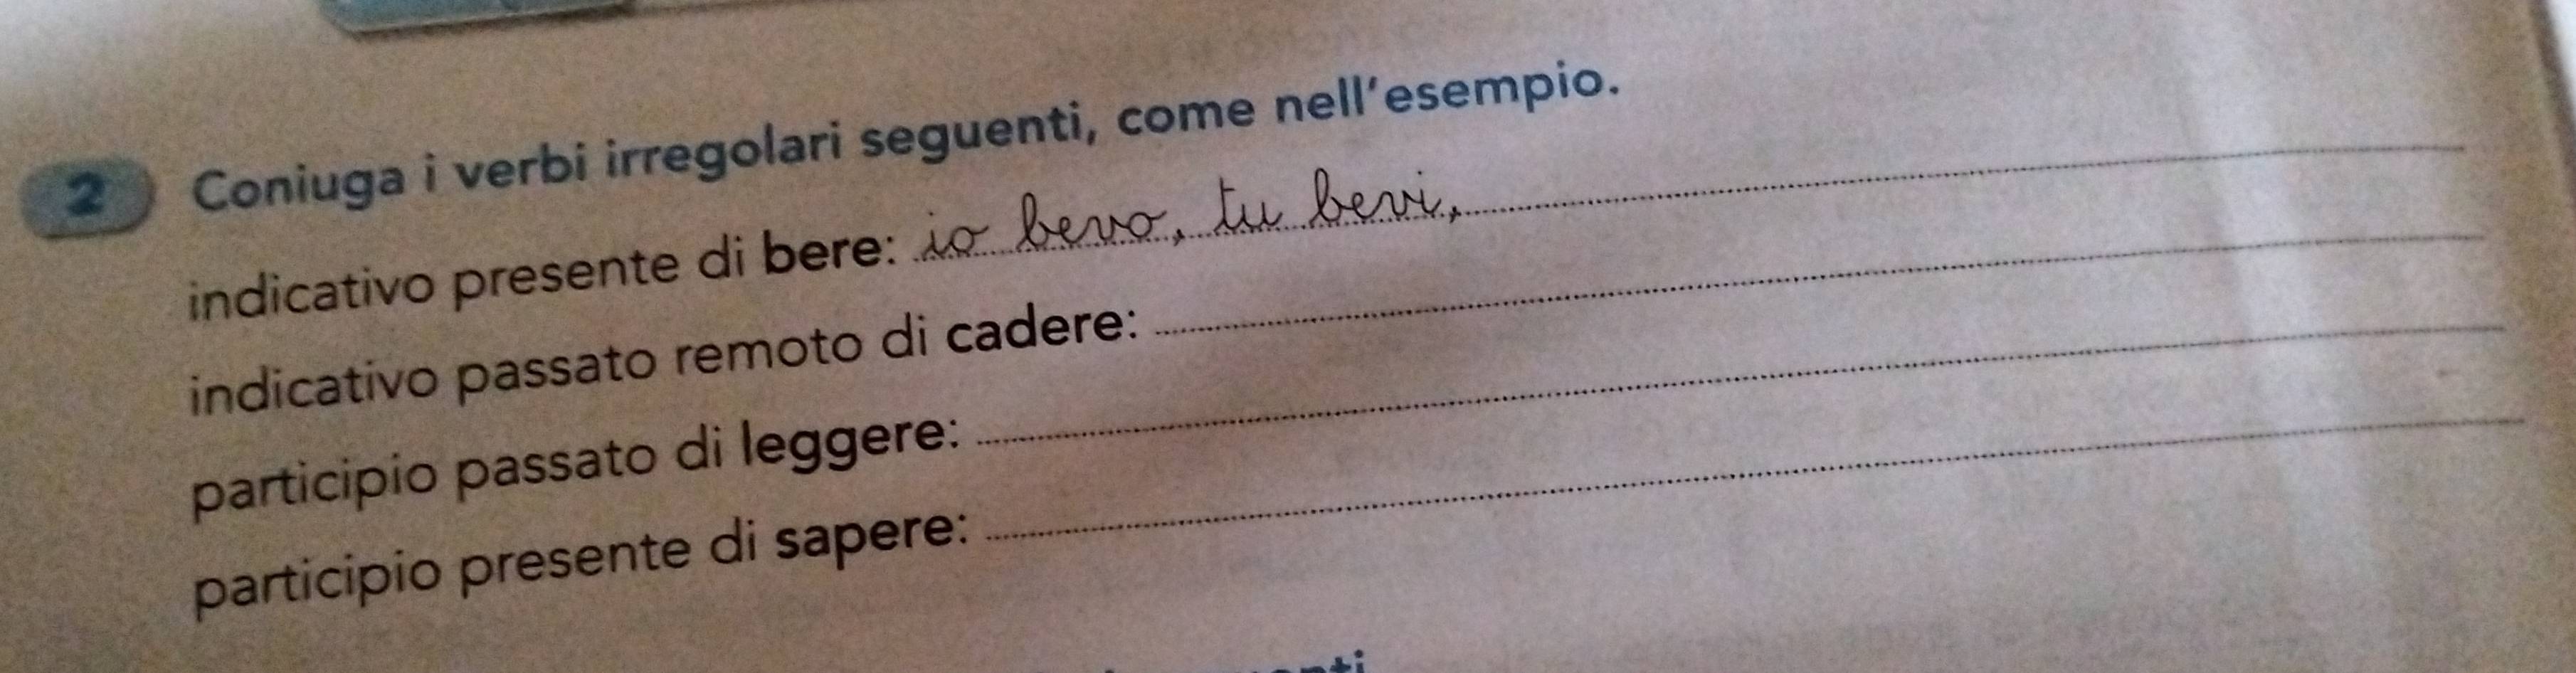 2 Coniuga i verbi irregolari seguenti, come nell'esempio.
indicativo presente di bere: io bevo, tu bevi,
indicativo passato remoto di cadere:
participio passato di leggere:
participio presente di sapere: